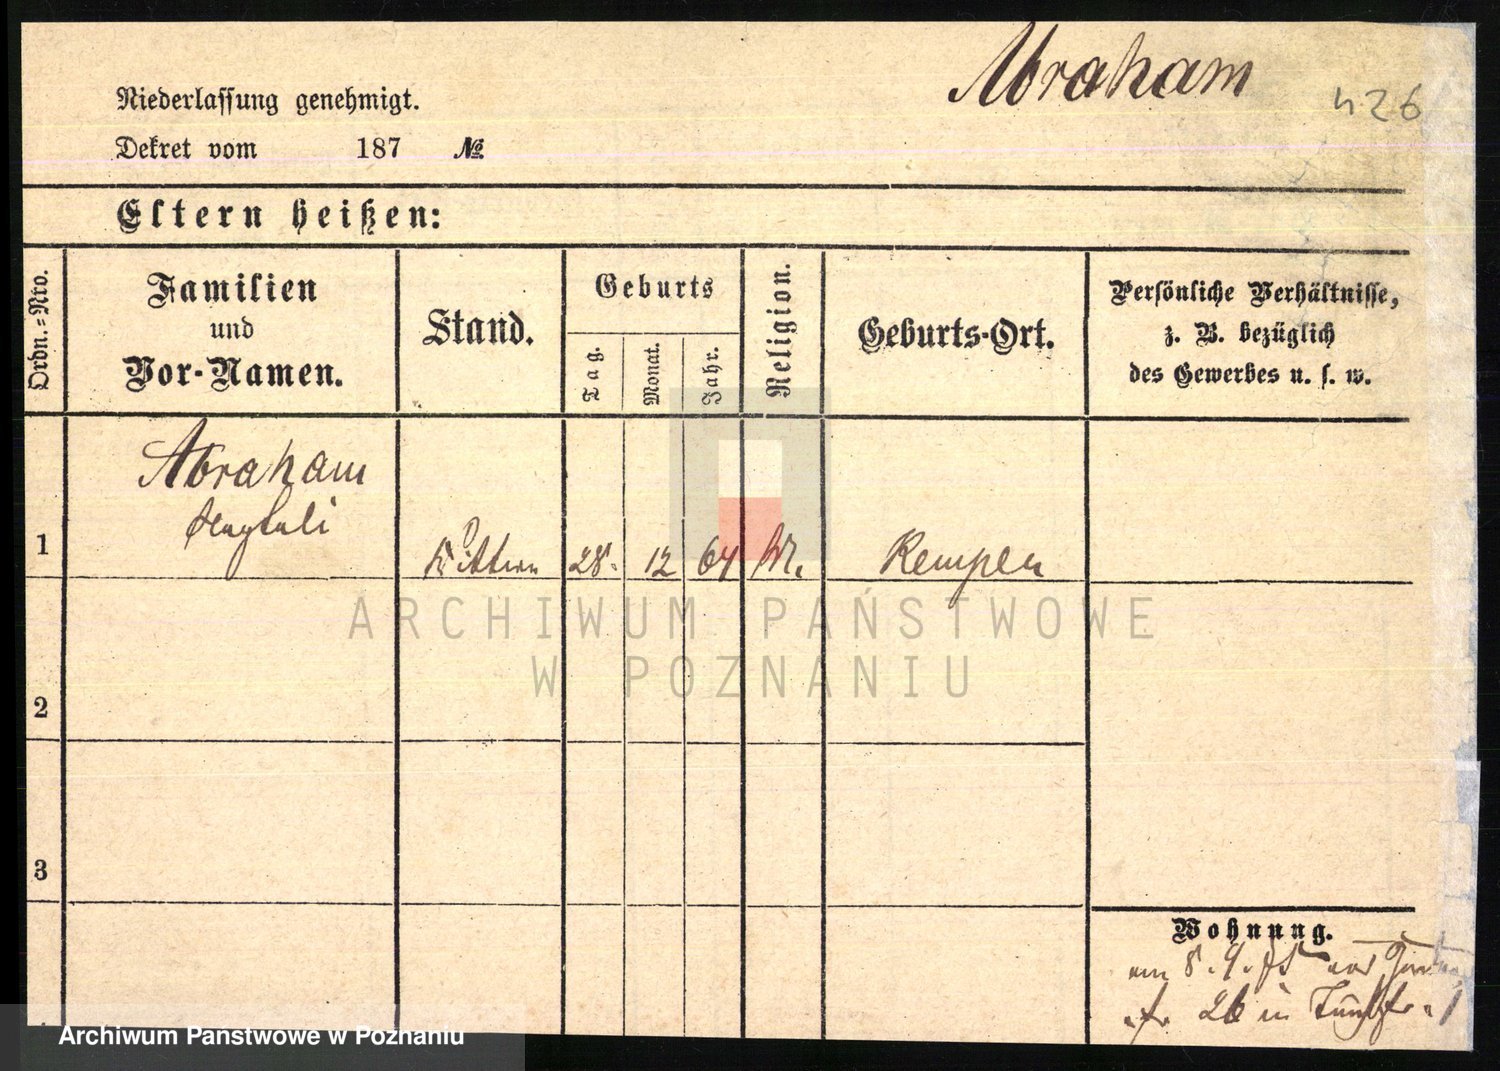 Abraham
426
Niederlassung genehmigt.
Dekret vom 187 №
Eltern heißen:
Ordn.-Nro.
Familien
und
Vor-Namen.
Stand.
Geburts
Tag.
Monat.
Jahr.
Religion.
Geburts-Ort.
Persönliche Verhältnisse,
z. B. bezüglich
des Gewerbes u. s. w.
Abraham
1
28. 12 64 M. Kempen
ARCHIWUM PAŃSTWOWE
W POZNANIU
2
3
Wohnung.
26 in
Archiwum Państwowe w Poznaniu